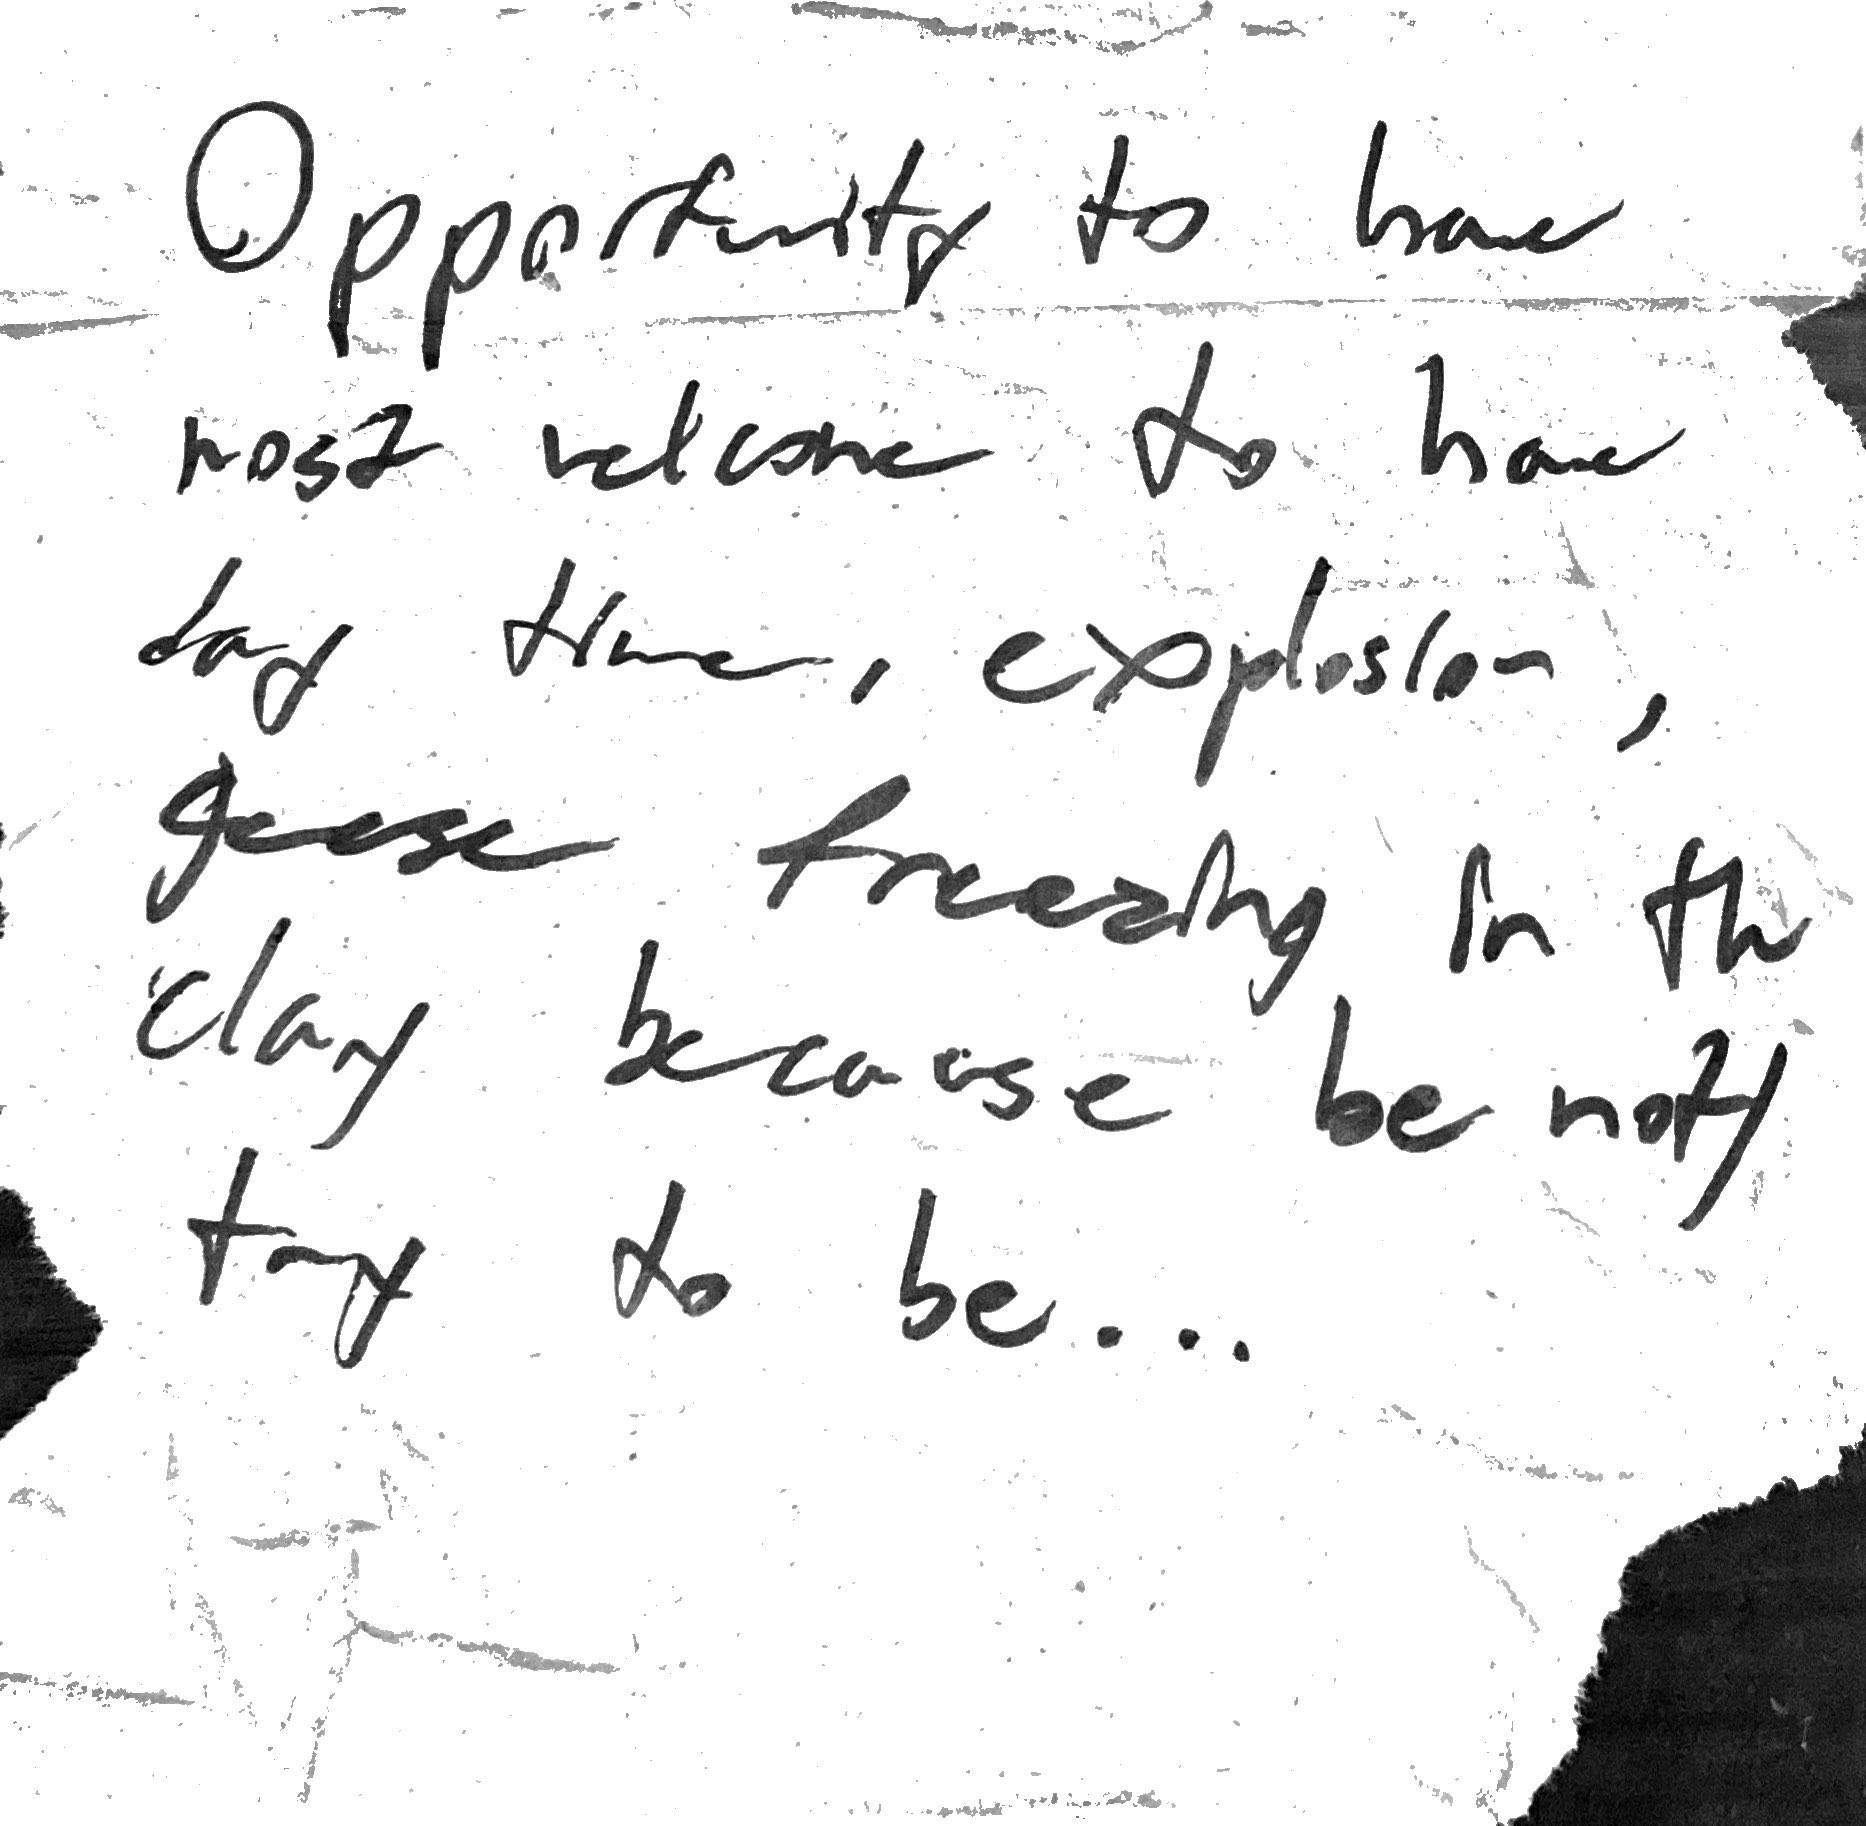 Opportunity to have
most welcome to have
day time, explosion,
geese freezing in th
clay because be not
try to be...